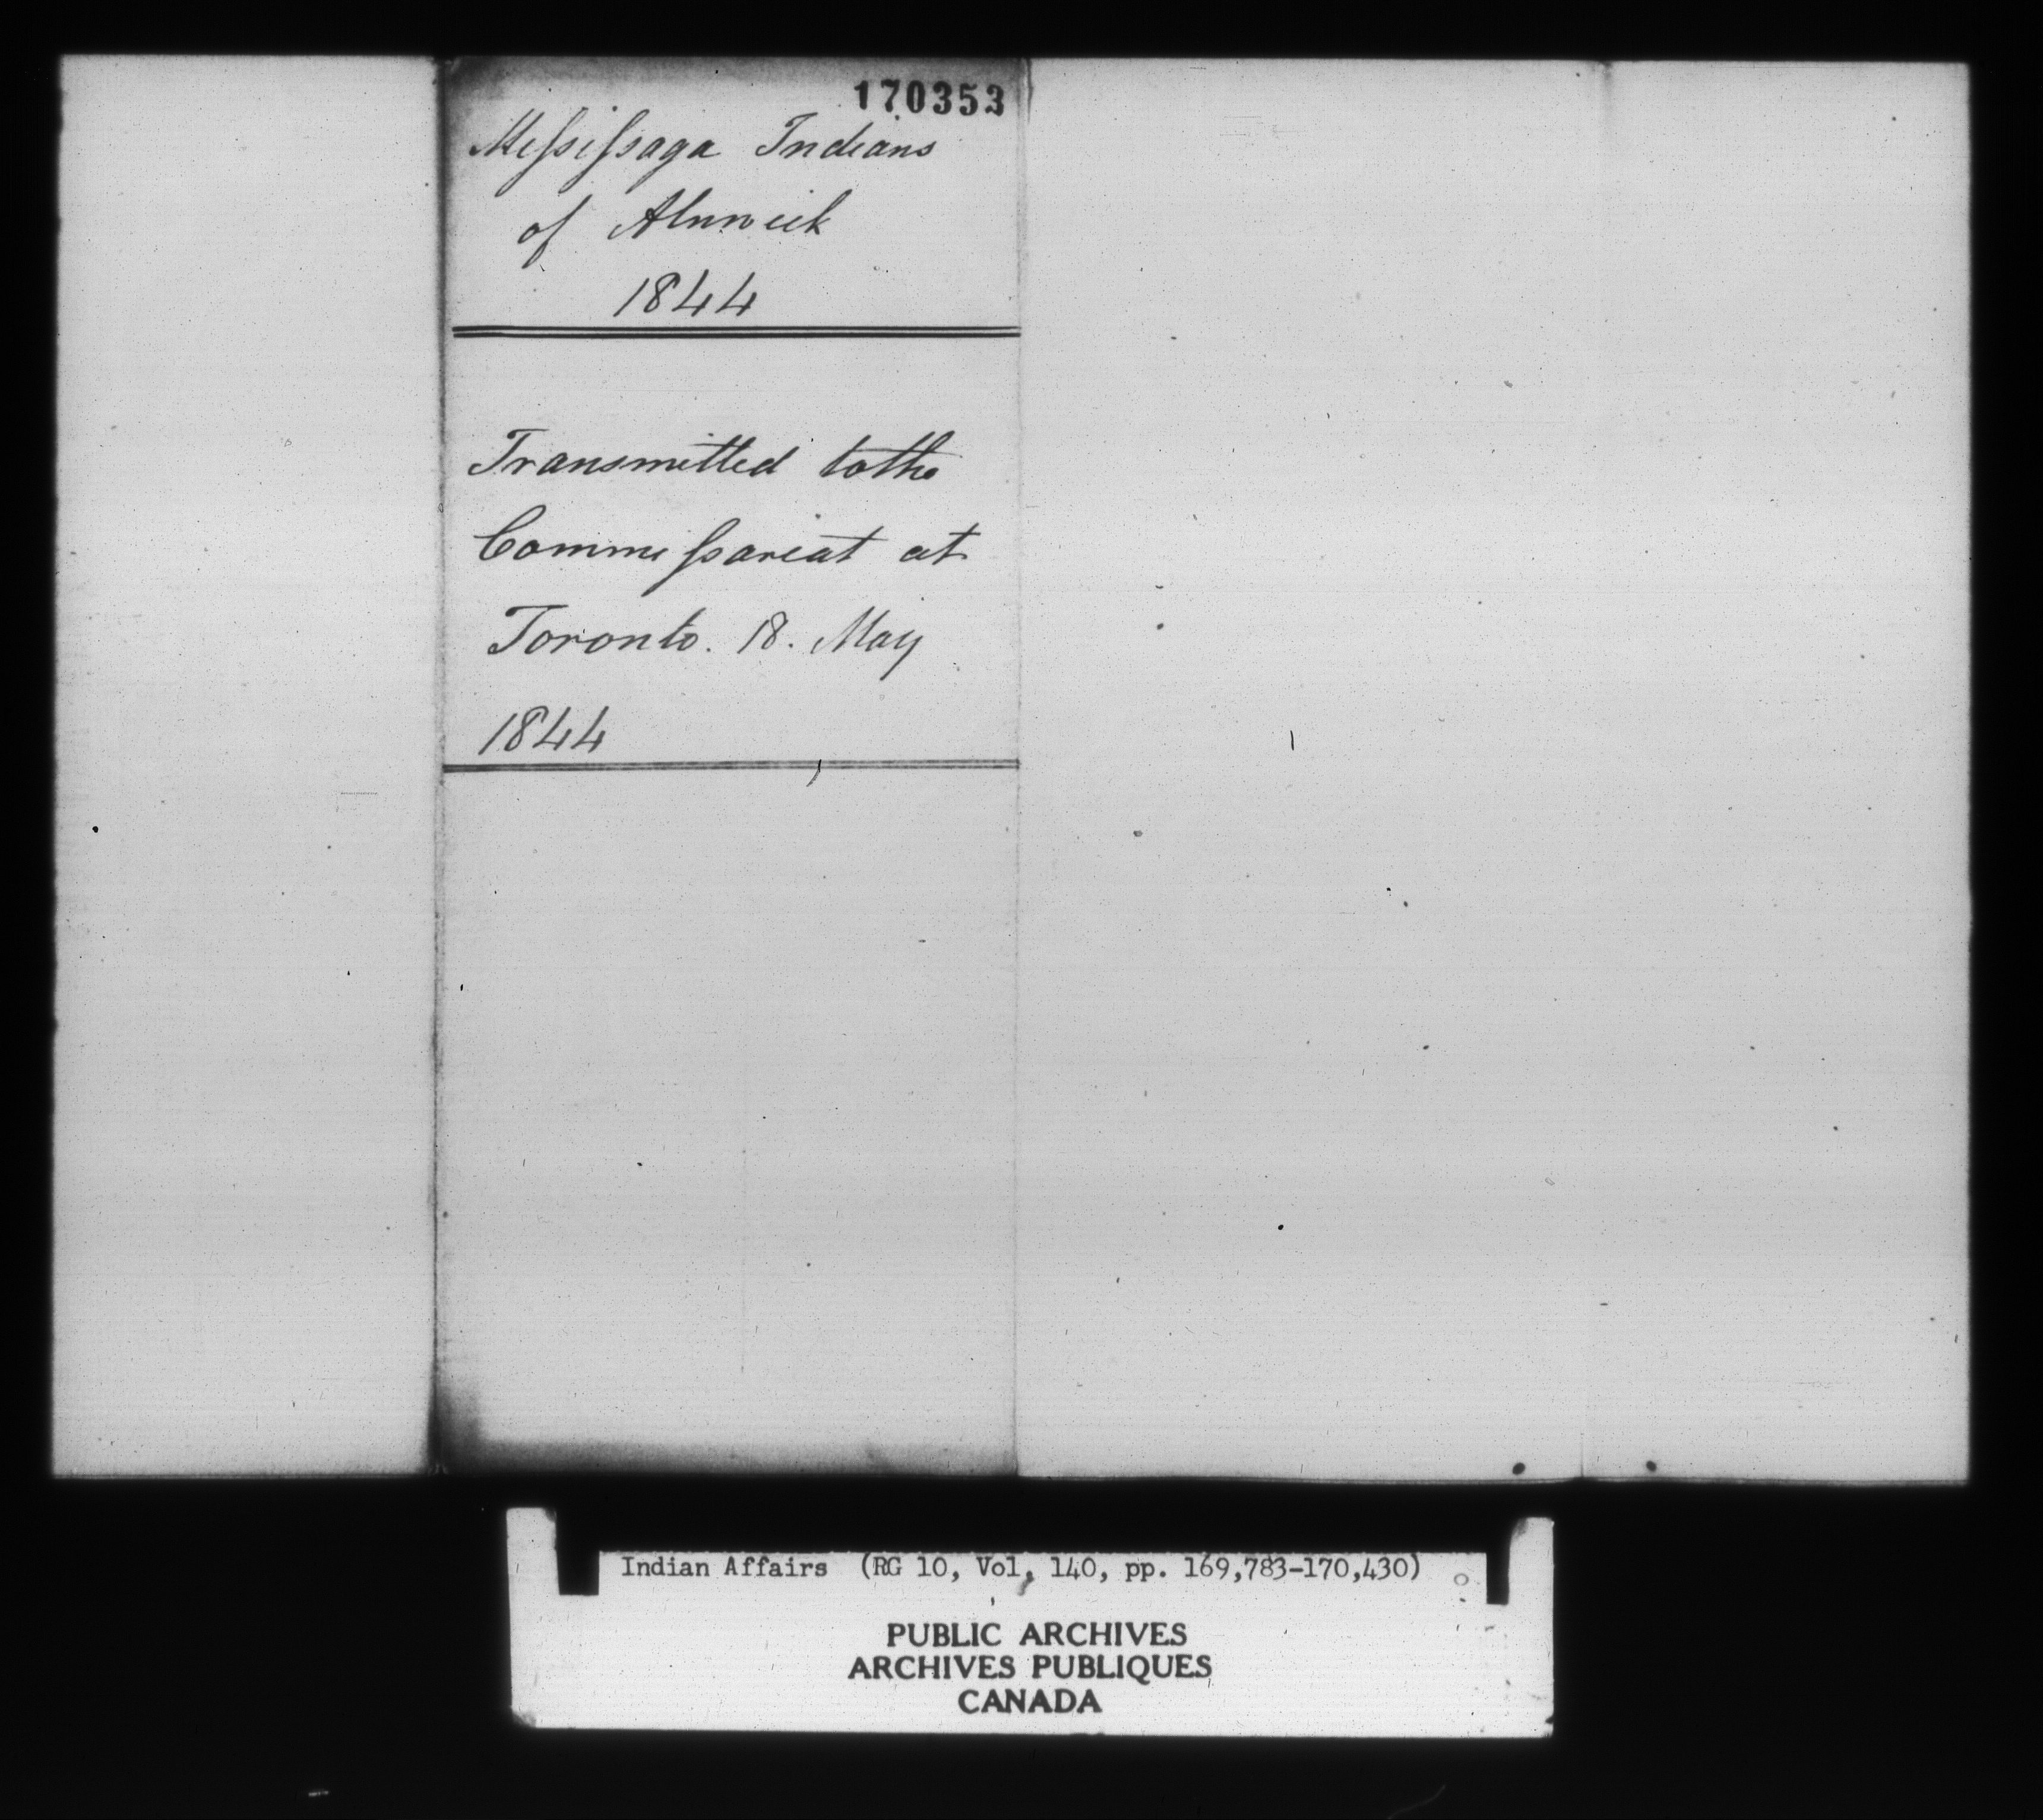 170353
Missisſaga Indians
of Alnwick
1844
Transmitted to the
Commisſariat at
Toronto. 18. May
1844
Indian Affairs (RG 10, Vol. 140, pp. 169,783-170,430)
PUBLIC ARCHIVES
ARCHIVES PUBLIQUES
CANADA